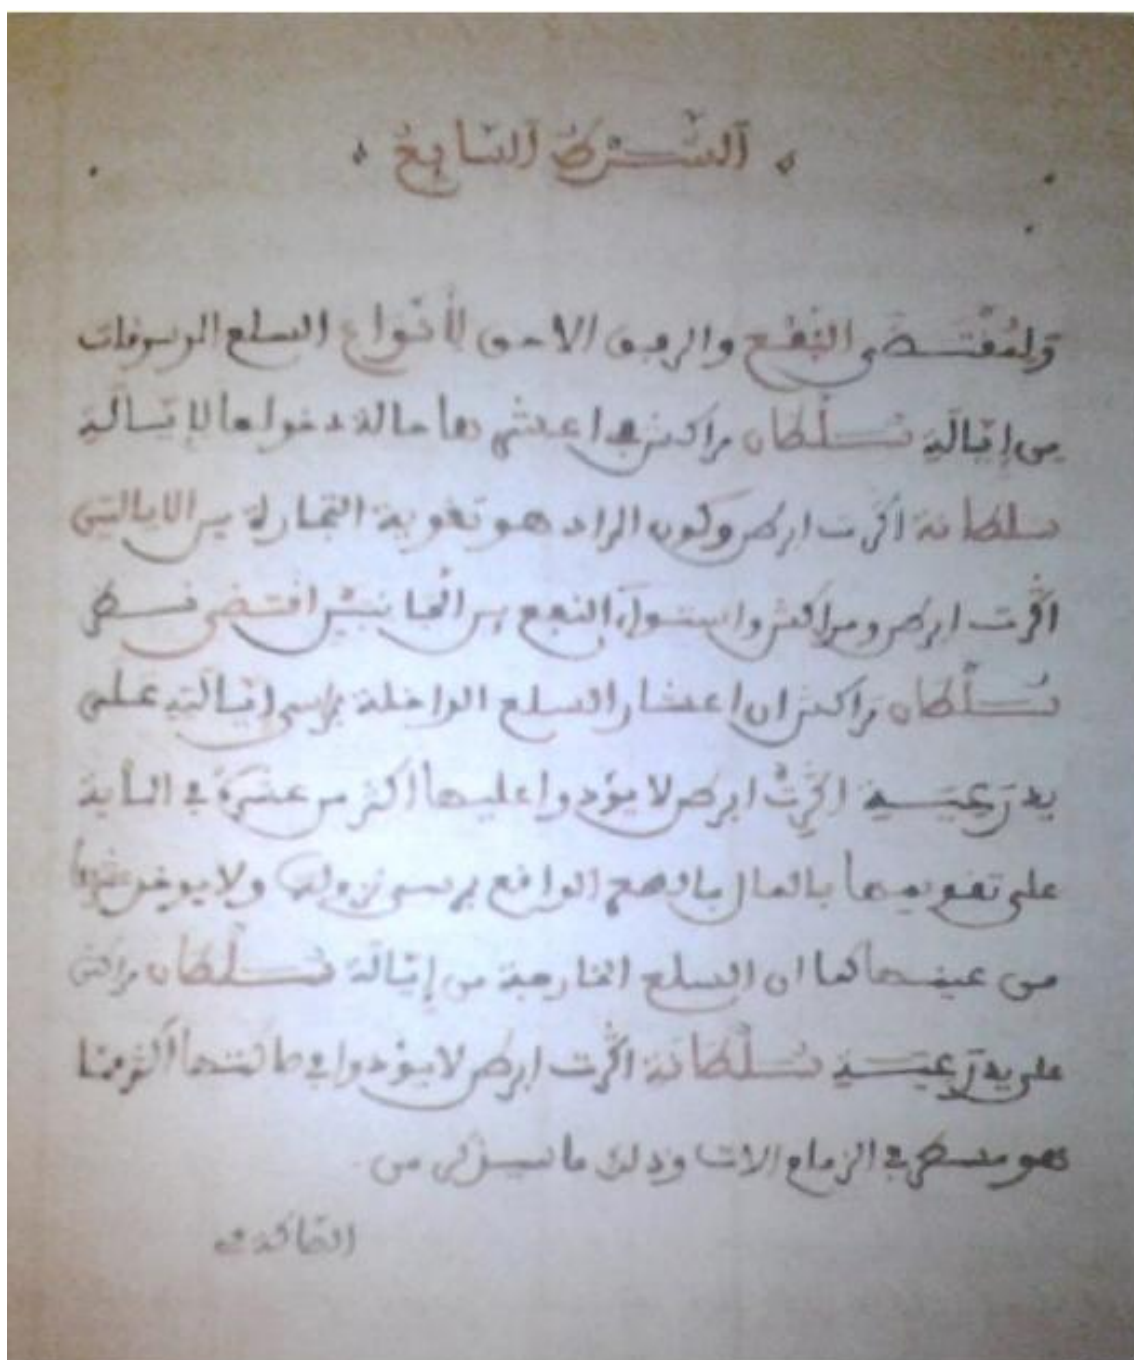 الشرط السابع
ولمقتضى النفع والرفق لأنواع السلع
من إيالة سلطان مراكش في اعشارها حالة دخولها لإيالة
سلطانة اگرت ابرطن وكون المراد هو تقوية التجارة بين الايالتين
اگرت ابرطن ومراكش واستواء النفع بين الجانبين اقتضى
سلطان مراكش ان اعشار السلع الداخلة إيالته على
يد رعية اگرت ابرطن لا يؤدوا عليها أكثر من عشرة في الماية
على تقويمها بالمال الواقع بمرسى نزولها ولا يوخذ
من عينها كما ان السلع الخارجة من إيالة سلطان مراكش
على يد رعية سلطانة اگرت ابرطن لا يؤدوا في أكثر مما
هو في وذلك ما سيذكر من